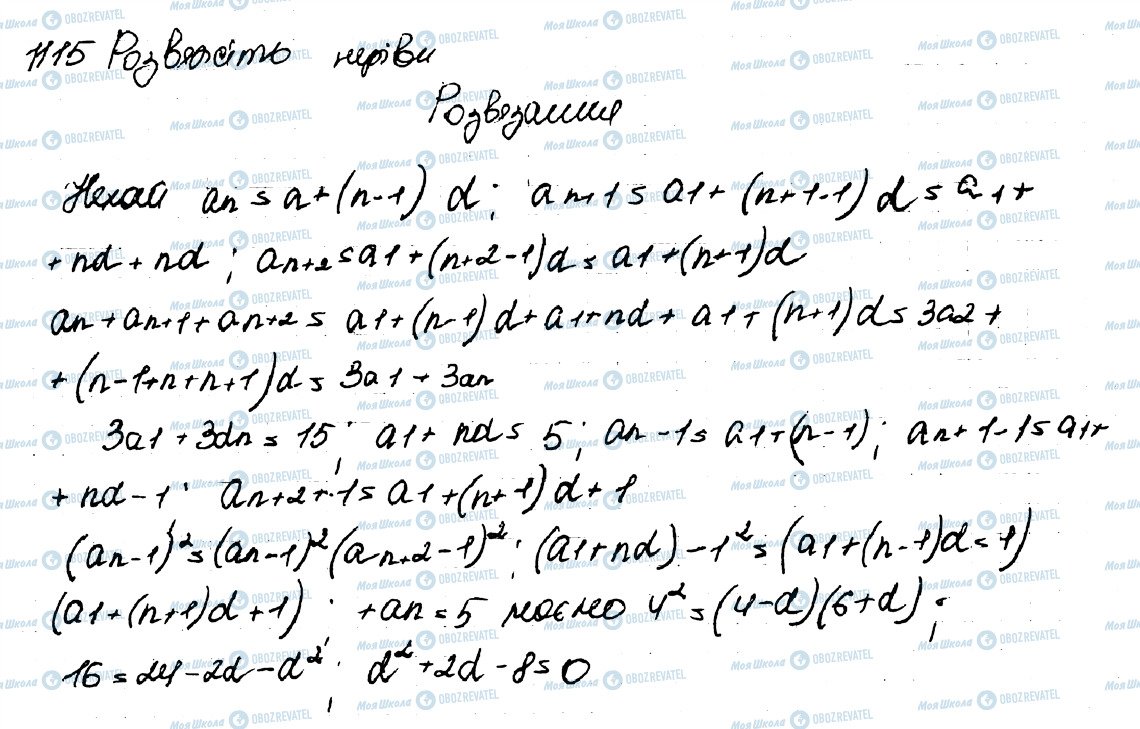 1115 Розвяжіть нерівн
Розвязання
Нехай an = a + (n-1) d; an+1 = a1 + (n+1-1) d = a1+
+ nd + nd; an+2 = a1 + (n+2-1)d = a1 + (n+1)d
an + an+1 + an+2 = a1 + (n-1) d + a1 + nd + a1 + (n+1)d = 3a2 +
+ (n-1+n+n+1)d = 3a1 + 3an
3a1 + 3dn = 15; a1 + nd = 5; an -1 = a1 + (n-1); an+1-1 = a1+
+ nd -1; an+2+1 = a1 + (n+1)d + 1
(an-1)² = (an-1)² (an+2-1)²; (a1+nd)-1² = (a1+(n-1)d-1)
(a1+(n+1)d+1); +an = 5 маємо 4² = (4-d)(6+d);
16 = 24 - 2d - d²; d² + 2d - 8 = 0
МояШкола OBOZREVATEL